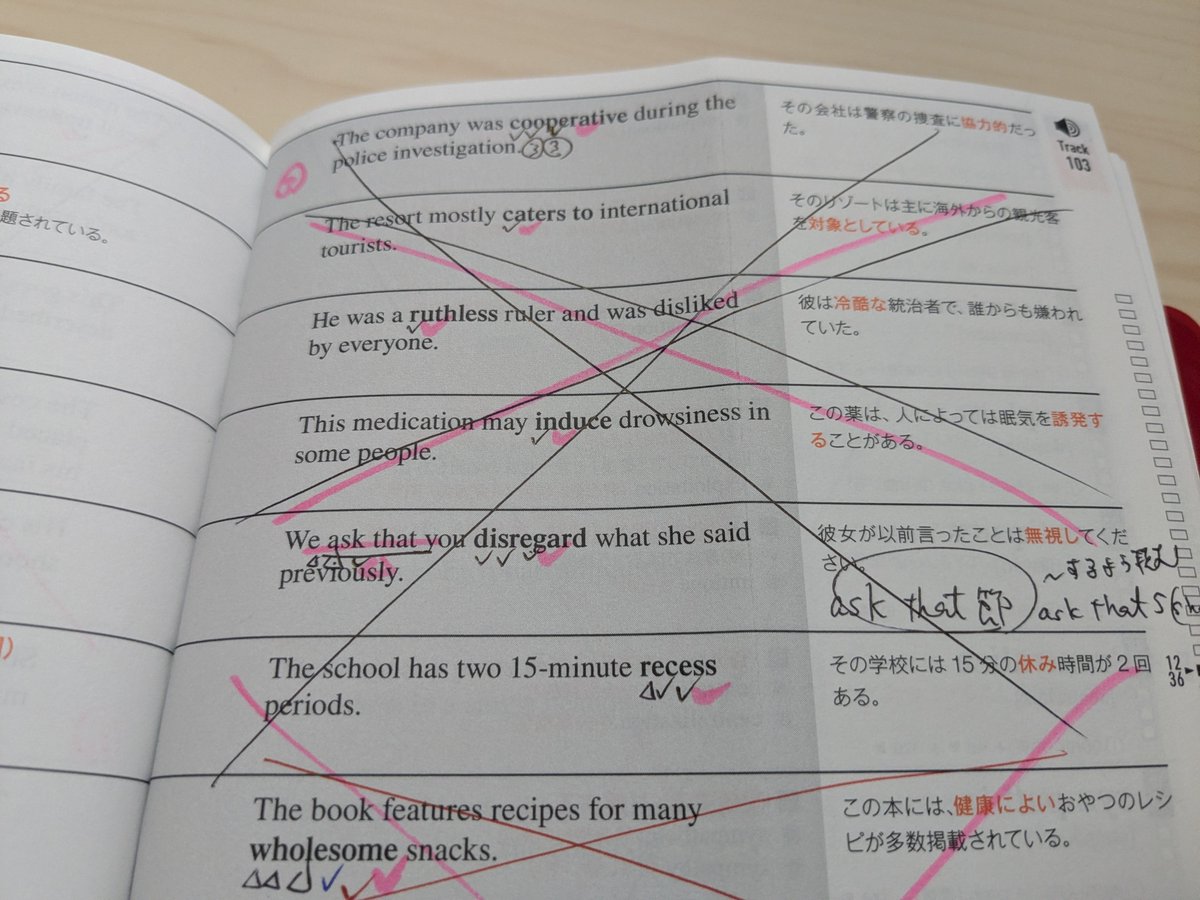 る
題されている。
The company was cooperative during the
police investigation.
③③
その会社は警察の捜査に協力的だっ
た。
Track
103
The resort mostly caters to international
tourists.
そのリゾートは主に海外からの観光客
を対象としている。
He was a ruthless ruler and was disliked
by everyone.
彼は冷酷な統治者で、誰からも嫌われ
ていた。
This medication may induce drowsiness in
some people.
この薬は、人によっては眠気を誘発す
ることがある。
We ask that you disregard what she said
previously.
彼女が以前言ったことは無視してくだ
さい。
~するよう
ask that 節
ask that S
The school has two 15-minute recess
periods.
その学校には15分の休み時間が2回
ある。
12
36
The book features recipes for many
wholesome snacks.
この本には、健康によいおやつのレシ
ピが多数掲載されている。